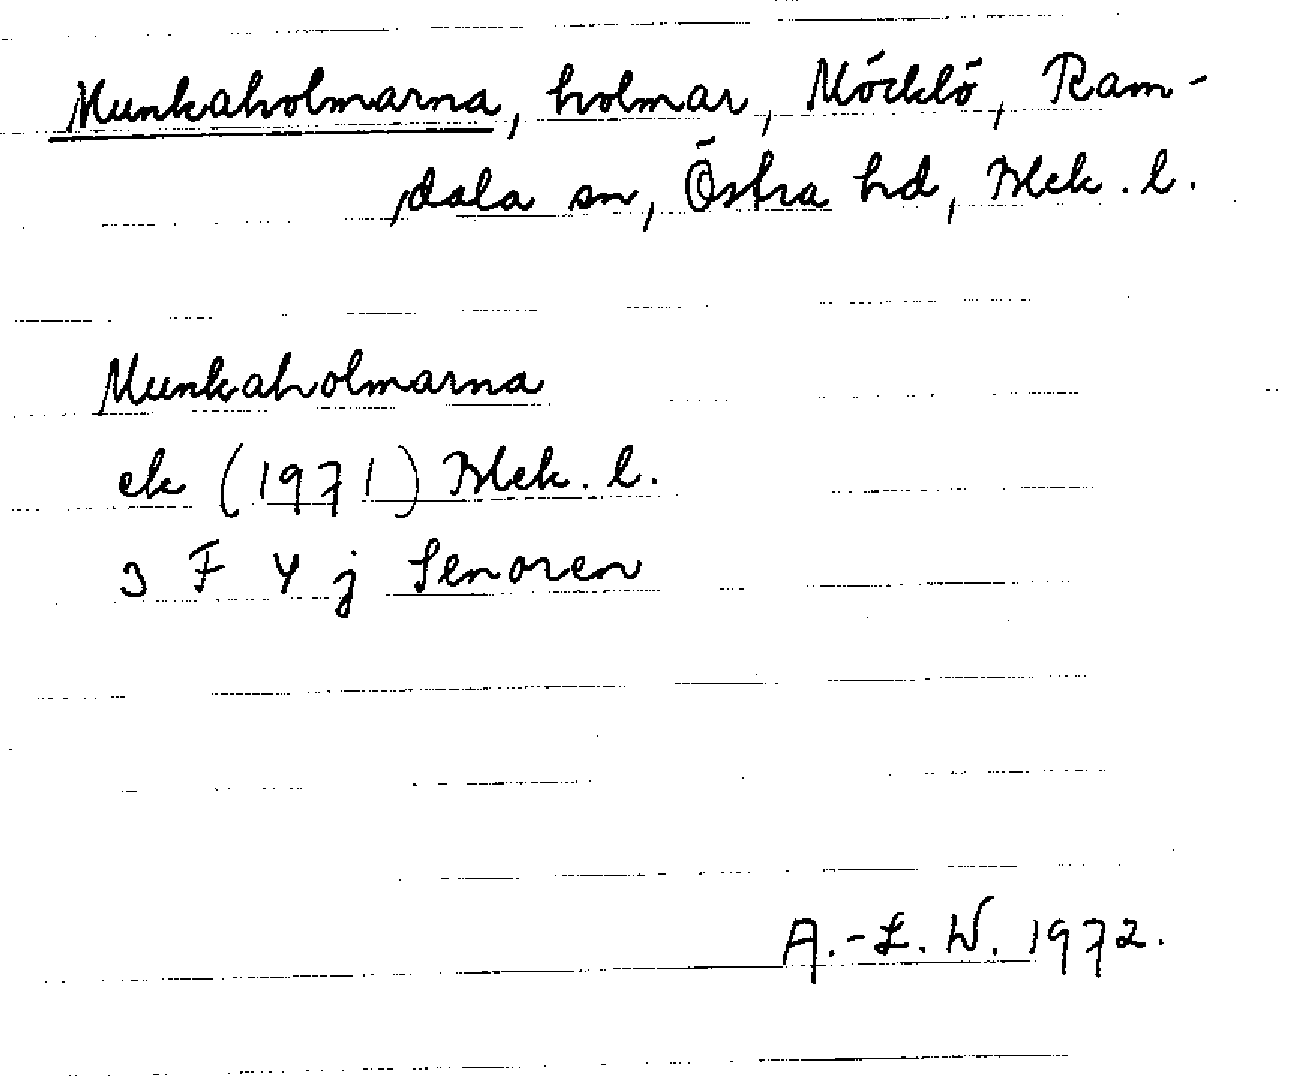 Munkaholmarna, holmar, Möcklö, Ram-
dala sn, Östra hd, Blek. l.
Munkaholmarna
ek (1971) Blek. l.
3 F 4 j Senoren
A.-L. W. 1972.